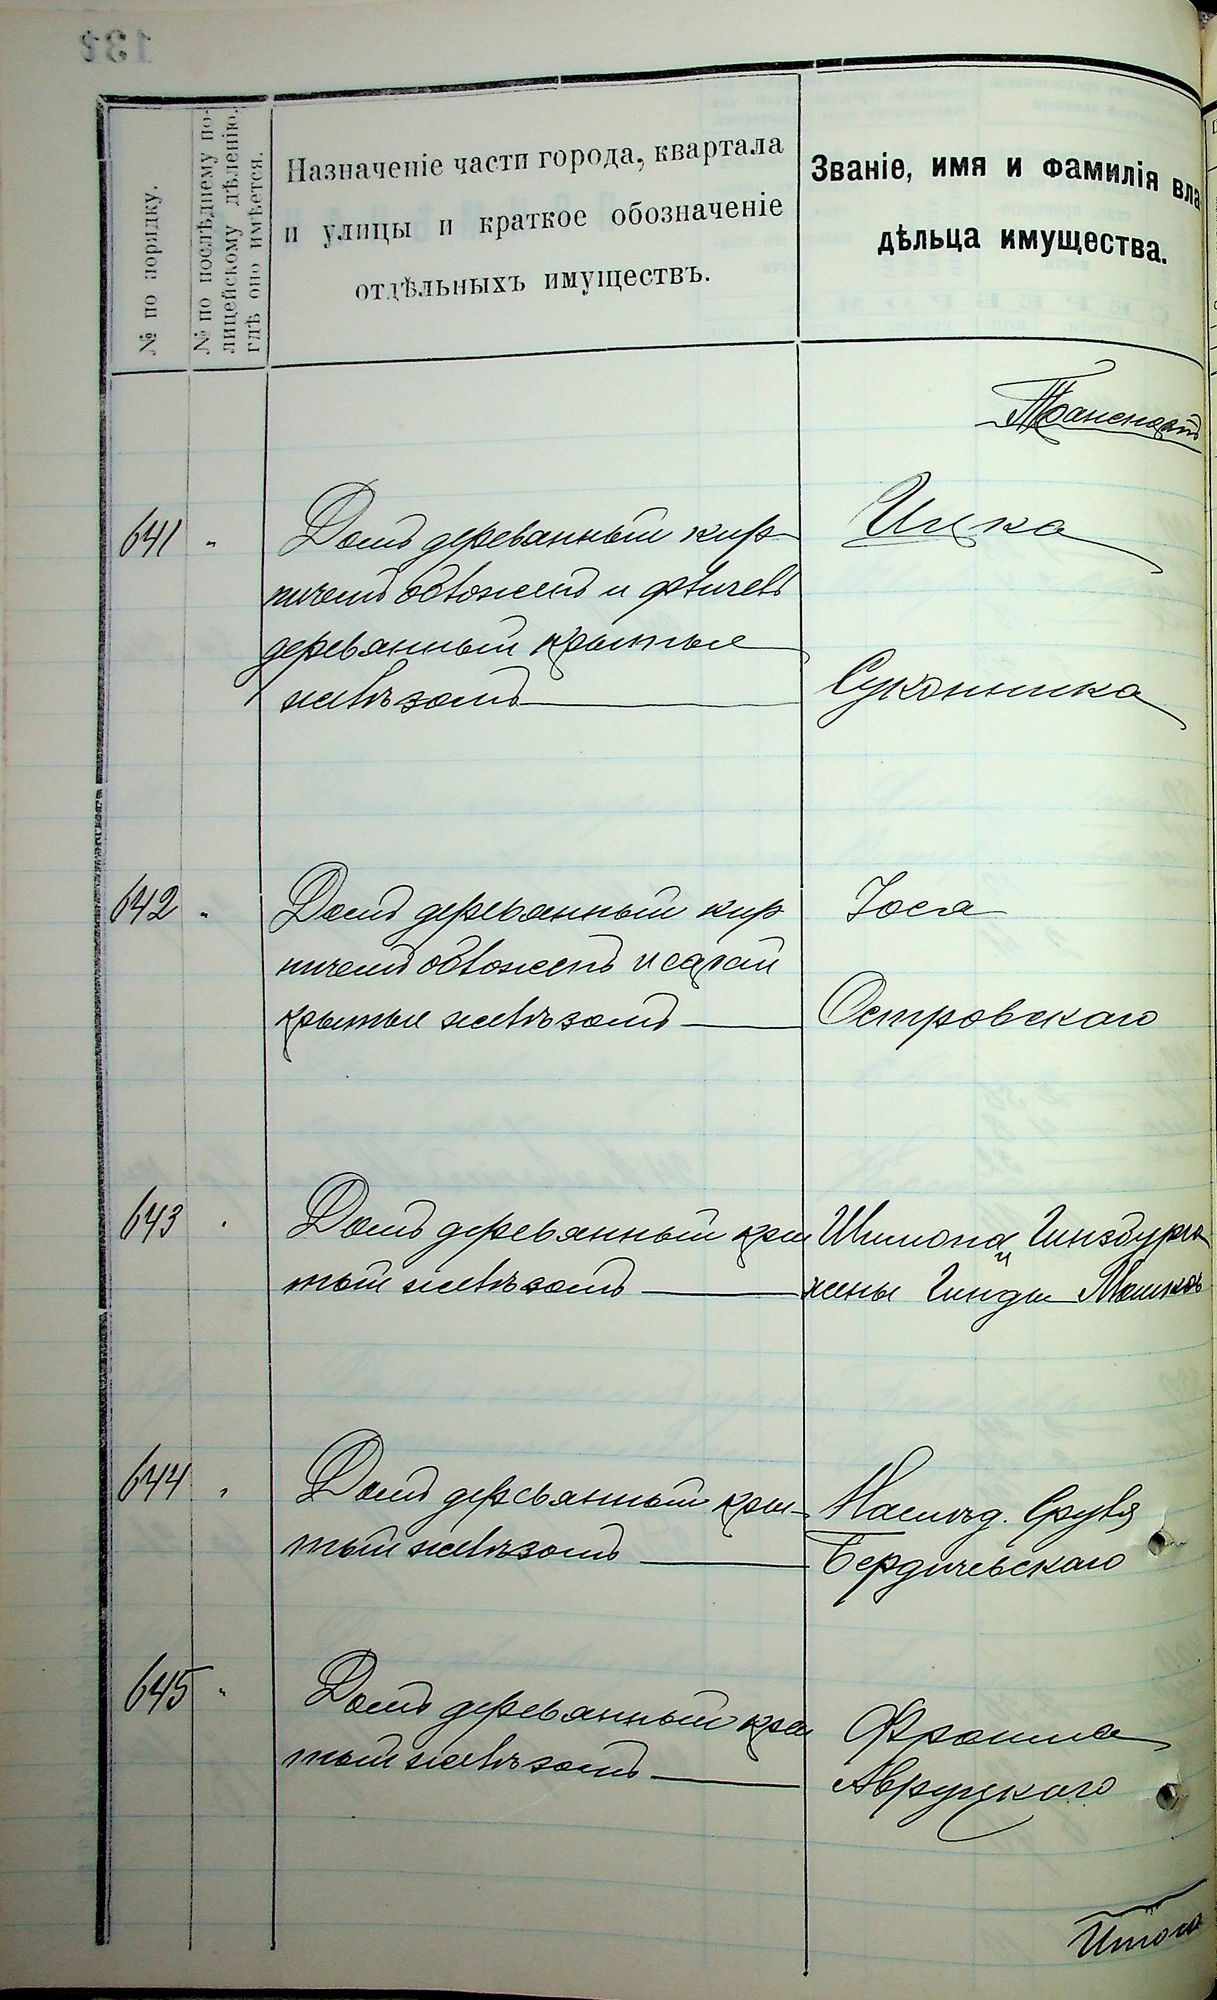 № по порядку.
№ по послѣднему по-
лицейскому дѣленію,
гдѣ оно имѣется.
Назначеніе части города, квартала
и улицы и краткое обозначеніе
отдѣльныхъ имуществъ.
Званіе, имя и фамилія вла
дѣльца имущества.
Транспортъ
641 "
Домъ деревянный кир-
пичемъ обложенъ и флигель
деревянный крытые
желѣзомъ
Ицка
Суконника
642 "
Домъ деревянный кир
пичемъ обложенъ и сарай
крытые желѣзомъ
Іося
Островскаго
643 "
Домъ деревянный кры
тый желѣзомъ
Шимона Гинзбурга
и
жены Гинды Мошков
644 "
Домъ деревянный кры-
тый желѣзомъ
Наслѣд. Сруля
Бердичевскаго
645 "
Домъ деревянный кры
тый желѣзомъ
Фроима
Авруцкаго
Итого